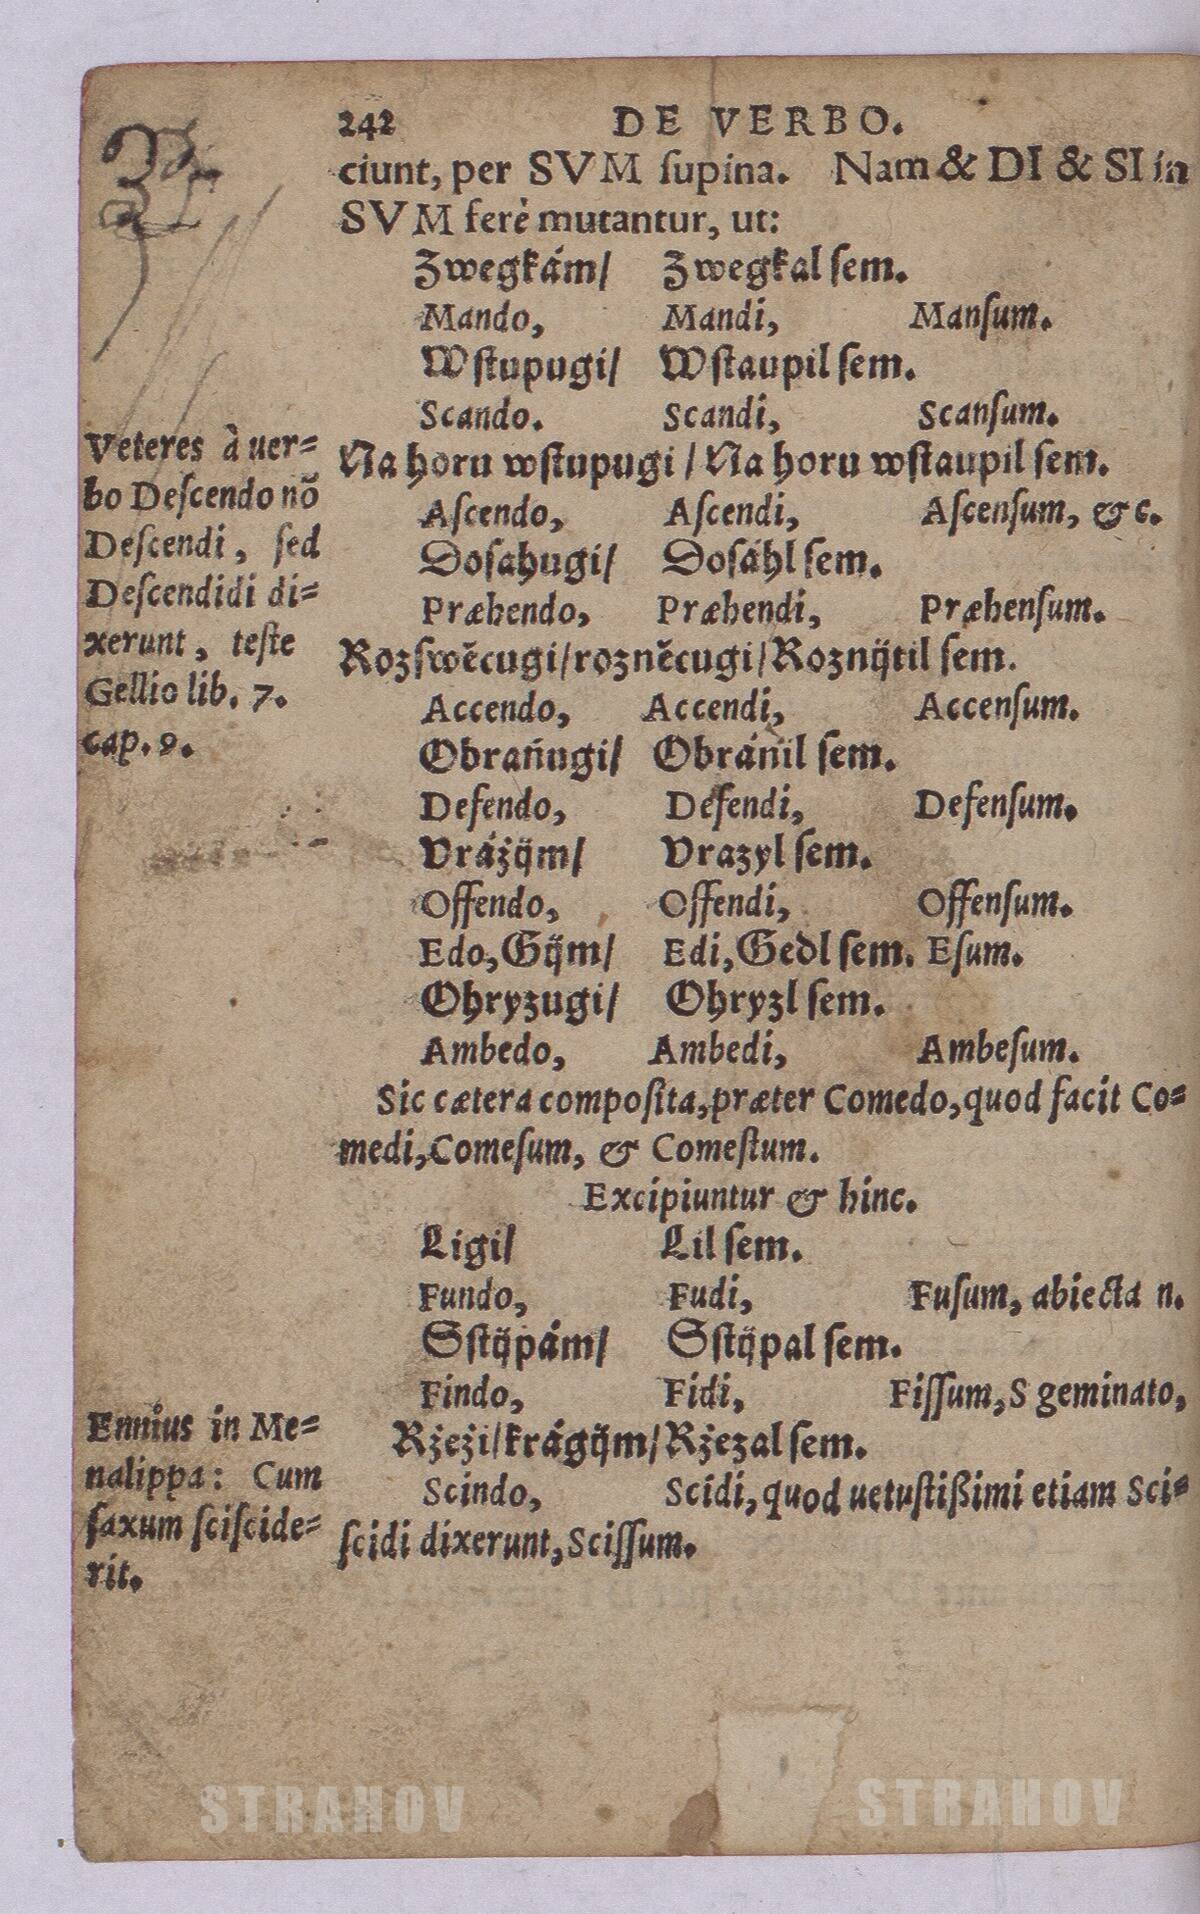 242 DE VERBO.
ciunt, per SVM ſupina. Nam & DI & SI in
SVM ferè mutantur, ut:
Zwegkám/ Zwegkal ſem.
Mando, Mandi, Manſum.
Wſtupugi/ Wſtaupil ſem.
Scando. Scandi, Scanſum.
Na horu wſtupugi / Na horu wſtaupil ſem.
Aſcendo, Aſcendi, Aſcenſum, &c.
Doſahugi/ Doſáhl ſem.
Præhendo, Præhendi, Præhenſum.
Rozſwěcugi/rozněcugi/Roznijtil ſem.
Accendo, Accendi, Accenſum.
Obrańugi/ Obránil ſem.
Defendo, Defendi, Defenſum.
Vrážijm/ Vrazyl ſem.
Offendo, Offendi, Offenſum.
Edo, Gijm/ Edi, Gedl ſem. Eſum.
Ohryzugi/ Ohryzl ſem.
Ambedo, Ambedi, Ambeſum.
Sic cætera compoſita, præter Comedo, quod facit Co=
medi, Comeſum, & Comeſtum.
Excipiuntur & hinc.
Ligi/ Lil ſem.
Fundo, Fudi, Fuſum, abiecta n.
Sſtijpám/ Sſtijpal ſem.
Findo, Fidi, Fiſſum, S geminato,
Rżeži/krágijm/Rżezal ſem.
Scindo, Scidi, quod uetuſtißimi etiam Sci=
ſcidi dixerunt, Sciſſum.
Veteres à uer=
bo Deſcendo nõ
Deſcendi, ſed
Deſcendidi di=
xerunt, teſte
Gellio lib. 7.
cap. 9.
Ennius in Me=
nalippa: Cum
ſaxum ſciſcide=
rit.
STRAHOV STRAHOV